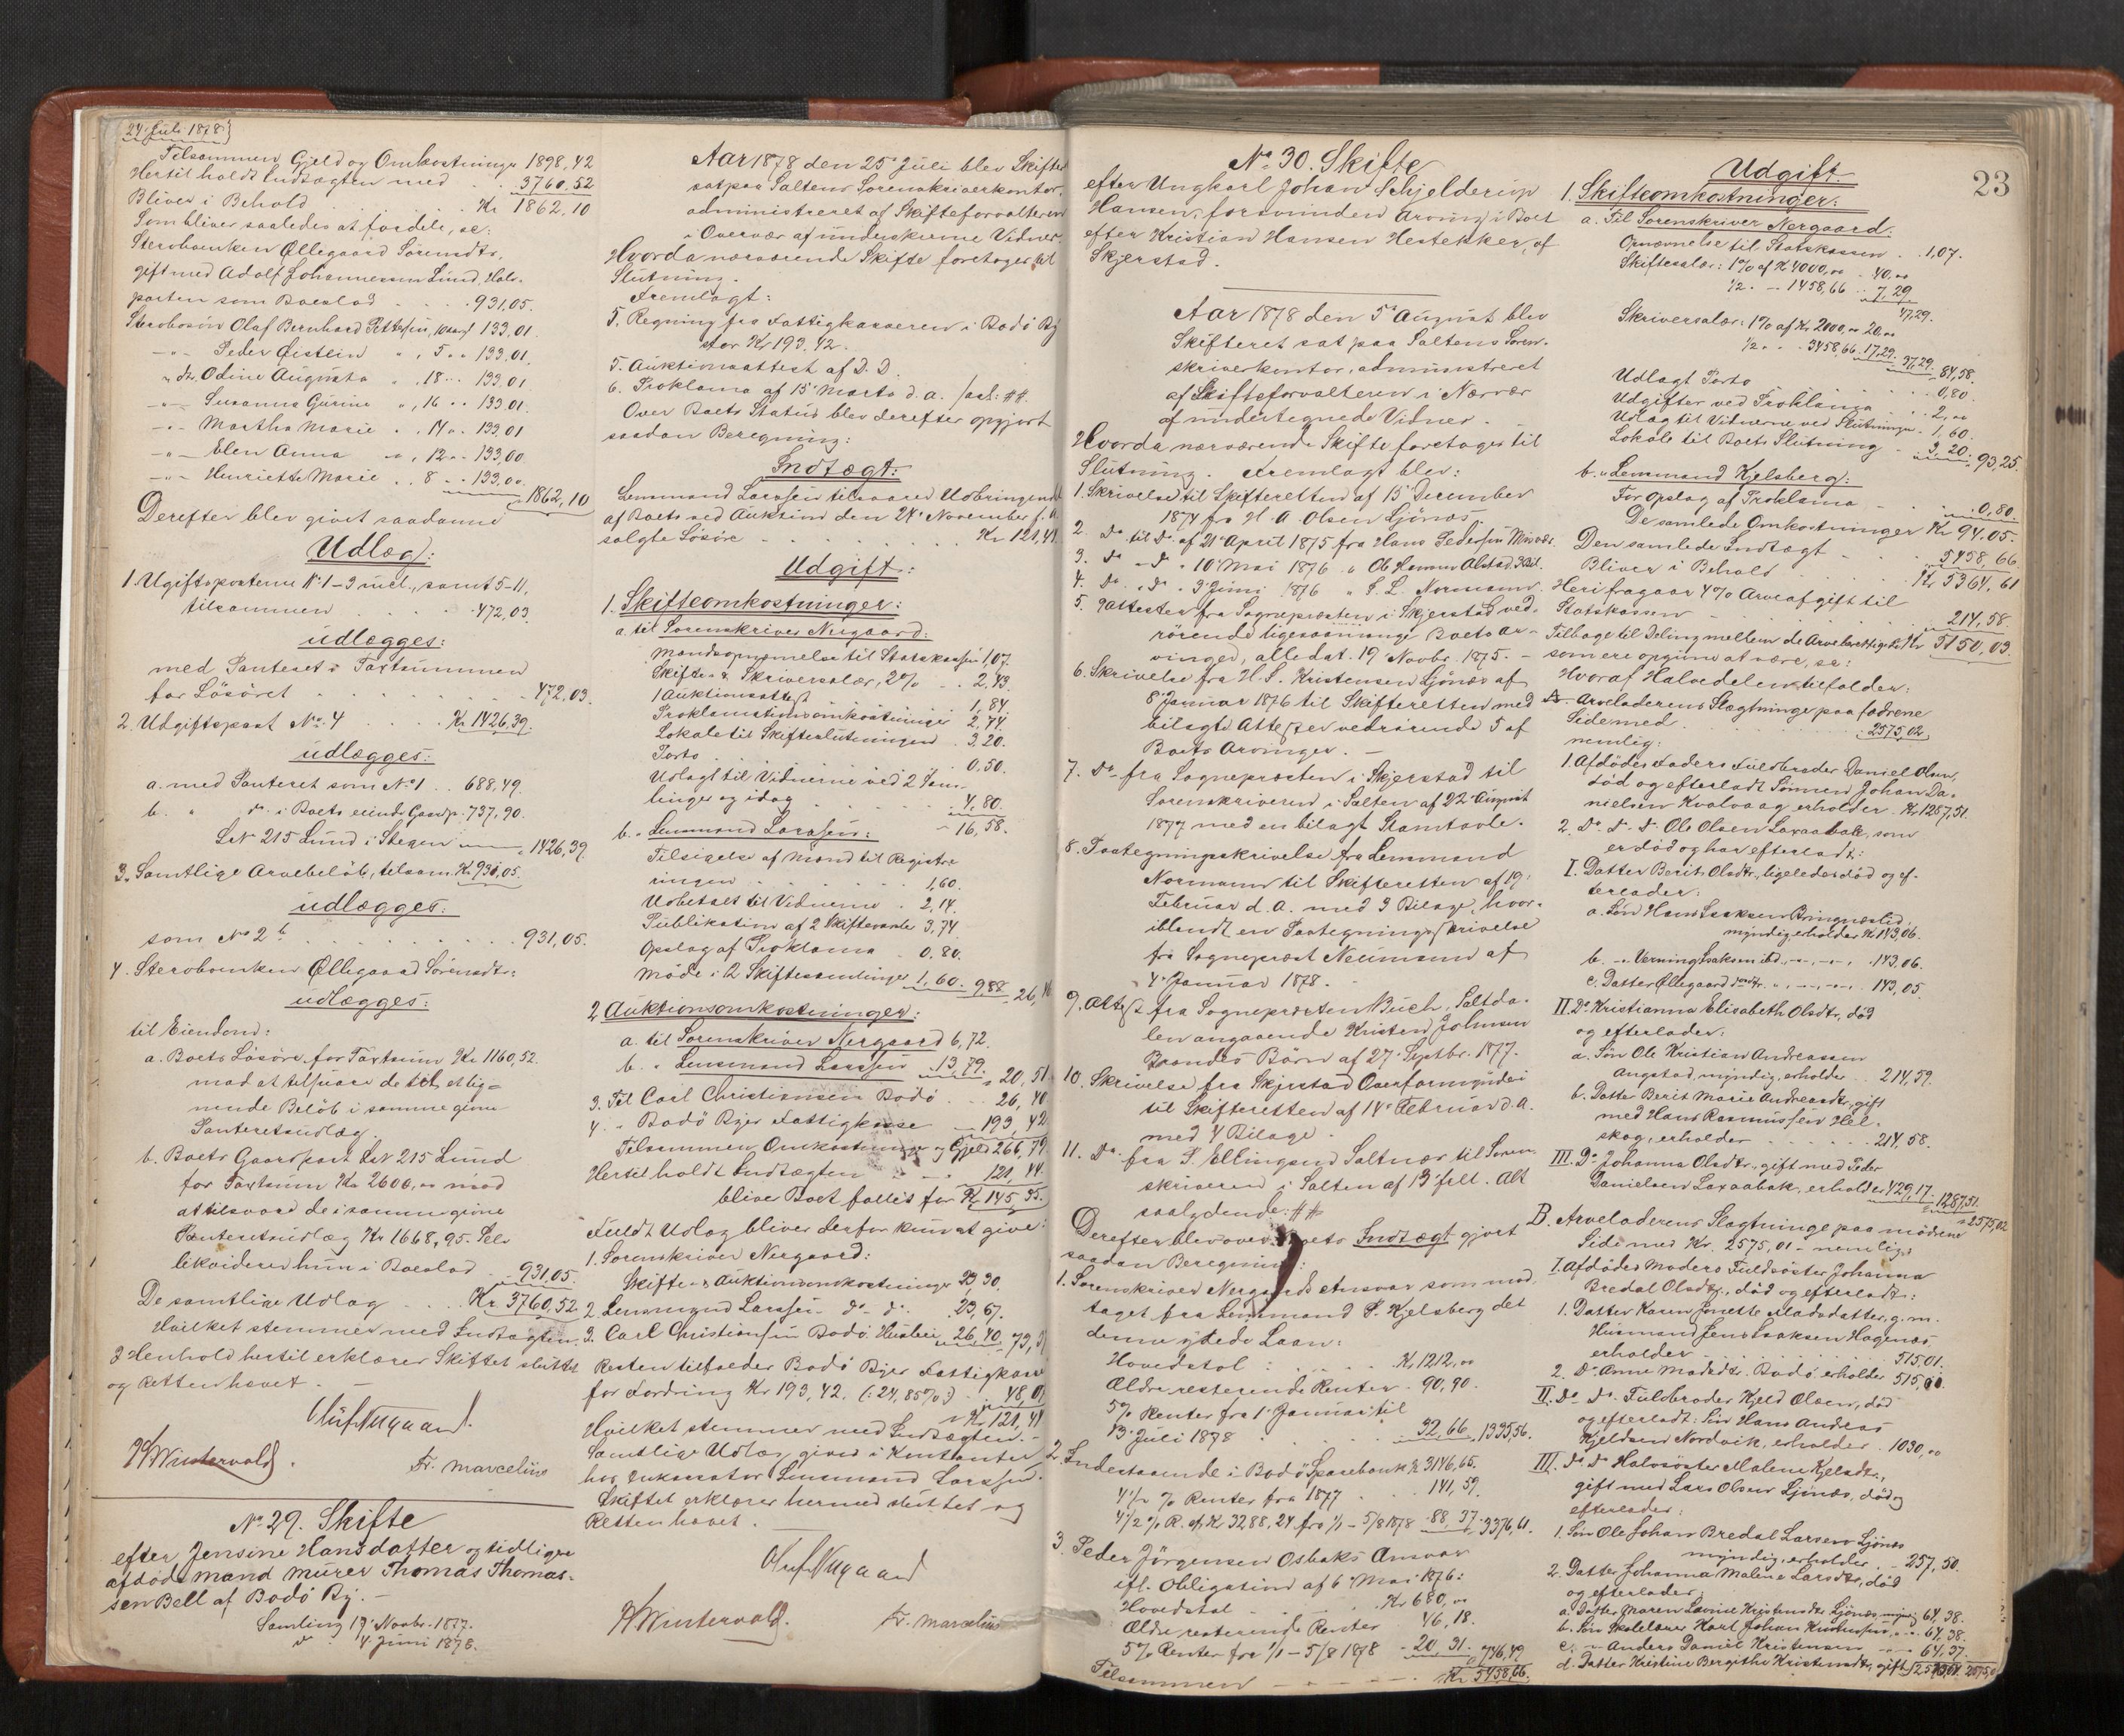 24. Juli 1878}
Tilsammen Gjeld og Omkostninger 1898,42
Hertil holdt Indtægten med . . 3760,52
Bliver i Behold . . . Kr 1862,10
Som bliver saaledes at fordele, se:
Sterboenken Ollegaard Sörensdtr,
gift med Adolf Johannessen Lund, Halv-
parten som Boeslod . . . 931,05.
Sterbosön Olaf Bernhard Pettersen, 10 aar gl 133,01.
-"- Peder Öistein " , 5 " . 133,01.
" dtr. Odine Augusta " , 18 . . 133,01.
-"- Susanna Gurine " , 16 . . 133,01.
-"- Martha Marie " , 14 " . 133,01
-"- Elen Anna " , 12 . . 133,00.
-"- Henriette Marie . . 8 . . 133,00.
1862,10
Derefter blev givet saadanne
Udlæg:
1. Ugiftsposterne No 1-3 incl., samt 5-11,
tilsammen . . . . 472,03.
udlægges:
med Panteret i Taxtsummen
for Lösöret . . . . 472,03.
2. Udgiftspost No 4 . . . Kr. 1426,39.
udlægges:
a. med Panteret som No 1 . . 688,49.
b. " do i Boets eiende Gaardp. 737,90.
LNo 215 Lund i Stegen 1426,39.
3. Samtlige Arvebelöb, tilsam. Kr 931,05.
udlægges:
som No 2 b . . . . 931,05.
4. Sterboenken Ollegaard Sörensdtr:
udlægges:
til Eiendom:
a. Boets Lösöre for Taxtsum Kr 1160,52.
mod at tilsvare de til et lig-
nende Belöb i samme givne
Panteretsudlæg.
b. Boets Gaardpart LNo 215 Lund
for Taxtsum Kr 2600,00 mod
at tilsvare de i samme givne
Panteretsudlæg Kr 1668,95. Selv
likviderer hun i Boeslod 931,05.
De samtlige Udlæg . . . Kr. 3760,52.
Hvilket stemmer med Indtægten.
I Henhold hertil erklæres Skiftet sluttet
og Retten hævet. -
H Wintervold. Fr. Marcelius
No 29. Skifte
efter Jensine Hansdatter og tidligere
afdöde mand murer Thomas Thomas-
sen Bell af Bodö By. -
Samling 19 Novbr. 1877.
do 4 Juni 1878.
Aar 1878 den 25 Juli blev Skifteret
sat paa Saltens Sorenskriverkontor,
administreret af Skifteforvalteren
i Overvær af underskrevne Vidner.
Hvorda nærværende Skifte foretoges til
Slutning.
Fremlagt:
5. Regning fra Fattigkasseren i Bodö By
stor Kr 193,42.
5. Auktionsattest af D. D.
6. Proklama af 15 Marts d. a.
Over Boets Status blev derefter opgjort
saadan Beregning:
Indtægt:
Lensmand Larssen tilsvarer Udbringendet
af Boets ved Auktion den 24 November f. A.
solgte Lösöre . . . . Kr 121,44
Udgift:
1. Skifteomkostninger:
a. til Sorenskriver Nergaard:
Mandsopnævnelse til Statskassen 1,07.
Skifte- & Skriversalær, 2% . . 2,43.
1 Auktionsattest . . 1,84.
Proklamationsomkostninger 2,74.
Lokale til Skifteslutningen . 3,20.
Porto . . . 0,50.
Udlagt til Vidnerne ved 2 Sam-
linger og idag . . . 4,80.
16,58.
b. " Lensmand Larssen:
Tilsigelse af Mænd til Registre-
ringen . . . 1,60.
Udbetalt til Vidnerne . 2,14.
Publikation af 2 Skiftesamler 3,74.
Opslag af Proklama . 0,80.
Möde i 2 Skiftesamlinger 1,60. 9,88 26,46
2. Auktionsomkostninger:
a. til Sorenskriver Nergaard 6,72.
b. " Lensmand Larssen 13,79. " 20,51
3. Til Carl Christiansen Bodö . . 26,40
4. " Bodö Byes Fattigkasse 193,42
Tilsammen Omkostninger og Gjeld 266,79
Hertil holdt Indtægten . . 121,44
bliver Boet fallit for Kr 145,35.
Fuldt Udlæg bliver derfor kun at give:
1. Sorenskriver Nergaard:
Skifte- & Auktionsomkostninger 23,30.
2. Lensmand Larssen do do . 23,67.
3. Carl Christiansen Bodö, Husleie 26,40. 73,37
Resten tilfalder Bodö Byes Fattigkasse
for Fordring Kr 193,42. (: 24,85% :) . 48,07
Kr 121,44
Hvilket stemmer med Indtægten. -
Samtlige Udlæg gives i Kontanter
hos Inkassator Lensmand Larssen.
Skiftet erklæres hermed sluttet og
Retten hævet.
H Wintervold. Fr. Marcelius
23
No 30. Skifte
efter Ungkarl Johan Schjelderup
Hansen, forsvunden Arving i Boet
efter Kristian Hansen Hestekker, af
Skjerstad.
Aar 1878 den 5 August blev
Skifteret sat paa Saltens Soren-
skriverkontor, administreret
af Skifteforvalteren i Nærvær
af undertegnede Vidner.
Hvorda nærværende Skifte foretoges til
Slutning. Fremlagt blev:
1. Skrivelse til Skifteretten af 15 December
1874 fra H. A. Olsen Ljönæs
2. do til do af 21 April 1875 fra Hans Pedersen Misvær.
3. do - do " 10 Mai 1876 "
4. do " do " 3 Juni 1876 " Normann.
5. Attester fra Sognepresten i Skjerstad ved-
rörende ligesaamange Boets Ar-
vinger, alle dat. 19 Novbr. 1875. -
6. Skrivelse fra H. S. Kristensen Ljönæs af
8 Januar 1876 til Skifteretten med
bilagte Attester vedrörende 5 af
Boets Arvinger. -
7. do fra Sognepresten i Skjerstad til
Sorenskriveren i Salten af 22 August
1877 med en bilagt Stamtavle.
8. Paategningsskrivelse fra Lensmand
Normann til Skifteretten af 19
Februar d. A. med 3 Bilage, hvor-
iblandt en Paategningsskrivelse
fra Sogneprest Neumann af
4 Januar 1878.
9. Attest fra Sognepresten Buch, Saltda-
len angaaende Kristen Johnsen
Brandes Börn af 27 Septbr. 1877.
10. Skrivelse fra Skjerstad Overformynderi
til Skifteretten af 14 Februar d. A.
med 4 Bilage.
11. do fra P. Ellingsen Saltnæs til Soren-
skriveren i Salten af 13 feb. Alt
saalydende:
Derefter blev over Boets Indtægt gjort
saadan Beregning:
1. Sorenskriver Nergaards Ansvar som mod-
taget fra Lensmand P. Kjelsberg det
denne ydede Laan:
Hovedstol : . . . . Kr 1212,00
Ældre resterende Renter . 90,90.
5% Renter fra 1 Januar til
13 Juli 1878 . . . 32,66. 1335,56.
2. Indestaaende i Bodö Sparebank Kr 3146,65.
4½ % Renter fra 1877 . . 141,59.
4½ % R. af Kr 3288,24 fra 1/1 - 5/8 1878 88,37. 3376,61.
3. Peder Jörgensen Osbaks Ansvar
ifl. Obligation af 6 Mai 1876:
Hovedstol . . . Kr 680,00
Ældre resterende Renter 46,18.
5% Renter fra 1/1 - 5/8 1878 . 20,31. 746,49
Tilsammen . . . Kr 5458,66.
Udgift.
1. Skifteomkostninger:
a. Til Sorenskriver Nergaard:
Opnævnelse til Statskassen . . 1,07.
Skiftesalær: 1% af Kr 4000,00 . 40,00
1/2 . . - 1458,66 . . 7,29
47,29.
Skriversalær: 1% af Kr 2000,00 20,00
1/2 . . . 3458,66. 17,29. 37,29. 84,58.
Udlagt Porto . . . 0,80.
Udgifter ved Proklama . . 2,00
Udlæg til Vidnerne ved Slutningen . 1,60.
Lokale til Boets Slutning . . 3,20. 93,25.
b. " Lensmand Kjelsberg:
For Opslag af Proklama . . . 0,80.
De samlede Omkostninger Kr 94,05.
Den samlede Indtægt . . 5458,66
Bliver i Behold . . . Kr 5364,61
Heri fragaar 4% Arveafgift til
Statskassen . . . 214,58.
Tilbage til Deling mellem de Arveberettigede Kr 5150,03.
som ere opgivne at være, se:
Hvoraf Halvdelen tilfalder:
A. Arveladerens Slægtninge paa fædrene
Side med . . . . 2575,02,
nemlig:
1. Afdödes Faders Fuldbroder Daniel Olsen,
död og efterladt Sönnen Johan Da-
nielsen Kvalvaag, erholder . Kr 1287,51.
2. do do do Ole Olsen Laxaabak, som
er död og har efterladt:
I. Datter Berit Olsdtr, ligeledes död og ef-
terlader:
a. Sön Hans Isaksen
myndig, erholder Kr 143,06.
b. -"- Isaksen ibd. , -"- , -"- , 143,06.
c. Datter Ollegaard . . 143,05.
II. do Kristianna Elisabeth Olsdtr, död
og efterlader:
a. Sön Ole Kristian Andreassen
Angstad, myndig, erholder . . 214,59.
b. Datter Berit Marie Andreasdtr, gift
med Hans Rasmussen Hel-
skog, erholder . . . . 214,58.
III. do Johanna Olsdtr, gift med Peder
Danielsen Laxaabak, erholder 429,17. 1287,51.
2575,02
B. Arveladerens Slægtninge paa mödrene
Side med Kr. 2575,01 - nemlig:
I. Afdödes Moders Fuldsöster Johanna
Bredal Olsdtr, död og efterladt:
1. Datter Karen Jonette Madsdatter, g. m.
Husmand Jens Isaksen Hagenæs,
erholder . . . . 515,01.
2. do Anne Madsdtr Bodö, erholder 515,00.
II. do do Fuldbroder Kjeld Olsen, död
og efterladt: Sön Hans Andreas
Kjeldsen Nordvik, erholder . 1030,00
III. do do Halvsöster Malene Kjelsdtr,
gift med Lars Olsen Ljönæs, död og
efterlader:
1. Sön Ole Johan Bredal Larsen Ljönæs
myndig, erholder . . 257,50.
2. Datter Johanna Malene Larsdtr, död
og efterlader:
a. Datter Maren Lovise Kristensdtr Ljönæs, myndig 64,38.
b. Sön Skolelærer Karl Johan Kristensen . . 64,38.
c. -"- Anders Daniel Kristensen -"- -"- 64,37.
d. Datter Kristine Bergithe Kristensdtr, gift